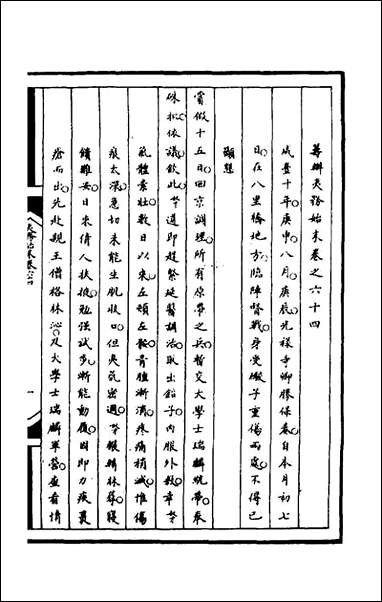 籌辦夷務始末卷之六十四
咸豐十年庚申八月庚辰光祿寺卿勝保奏自本月初七
日在八里橋地方臨陣督戰身受礮子重傷兩處不得已
顯懇
賞假十五日回京調理所有原帶之兵暫交大學士瑞麟統帶奉
硃批依議欽此 遵即趕緊延醫調治取出鉛子內服外敷幸
氣體素壯數日以來左頰左骽骨腫漸消疼痛稍減惟傷
痕太深急切未能生肌收口但夷氛密邇 餱糈林 寢
饋難安日來倩人扶掖勉強試步漸能動履因即力疾裹
瘡而出先赴親王僧格林沁及大學士瑞麟軍營查看情
夷務始末卷六四
一